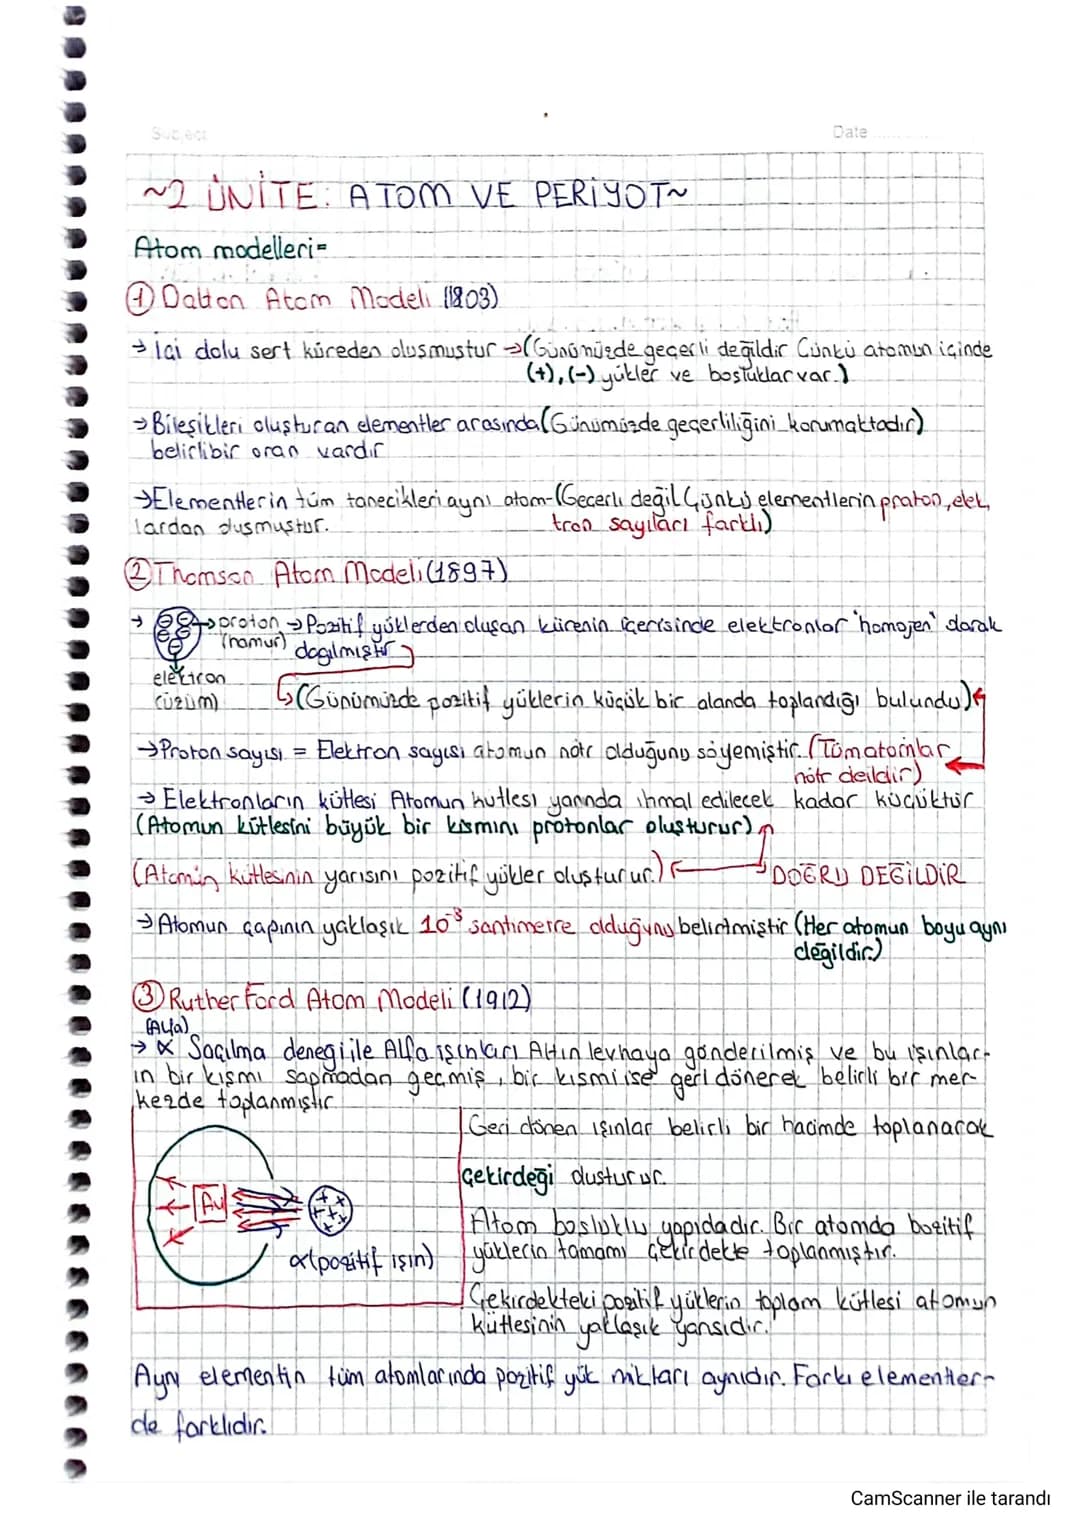 Subject
Date
~2 ÜNİTE: ATOM VE PERİYOT~
Atom modelleri=
① Dalton Atom Modeli (1803)
→ İçi dolu sert küreden oluşmuştur →(Günümüzde geçerli değildir Çünkü atomun içinde
(+), (-) yükler ve boşluklar var.)
→Bileşikleri oluşturan elementler arasında(Günümüzde geçerliliğini korumaktadır)
belirlibir oran vardır
→Elementlerin tüm tanecikleri aynı atom-(Geçerli değil Çünkü elementlerin proton, elek
lardan oluşmuştur. tron sayıları farklı)
② Thomson Atom Modeli(1897)
→ proton → Pozitif yüklerden oluşan kürenin içerisinde elektronlar "homojen" olarak
(hamur) dağılmıştır
elektron
(üzüm) (Günümüzde pozitif yüklerin küçük bir alanda toplandığı bulundu)
→Proton sayısı = Elektron sayısı atomun nötr olduğunu söyemiştir. (Tüm atomlar
nötr deildir)
→ Elektronların kütlesi Atomun kutlesi yanında ihmal edilecek kadar küçüktür
(Atomun kütlesini büyük bir kısmını protonlar oluşturur)
(Atomun kütlesinin yarısını pozitif yükler oluşturur.) DOĞRU DEĞİLDİR
→Atomun çapının yaklaşık 10⁻⁸ santimetre olduğunu belirtmiştir (Her atomun boyu aynı
değildir.)
③ Rutherford Atom Modeli (1912)
(Alfa)
→ α Saçılma deneği ile Alfa ışınları Altın levhaya gönderilmiş ve bu ışınlar-
ın bir kısmı sapmadan geçmiş, bir kısmı ise geri dönerek belirli bir mer-
kezde toplanmıştır
Geri dönen ışınlar belirli bir hacimde toplanarak
Çekirdeği oluşturur.
Au
α(pozitif ışın)
Atom boşluklu yapıdadır. Bir atomda bozitif
yüklerin tamamı çekirdekte toplanmıştır.
Çekirdekteki pozitif yüklerin toplam kütlesi atomun
kütlesinin yaklaşık yarısıdır.
Aynı elementin tüm atomlarında pozitif yük miktarı aynıdır. Farkı elementler-
de farklıdır.
CamScanner ile tarandı